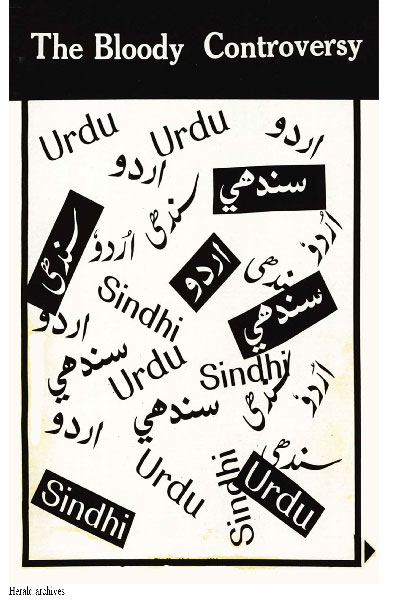 The Bloody Controversy
Urdu
Urdu
اردو
اردو
سندهي
سندھی
سندھی
اُردو
اُردو
اردو
سندھی
Sindhi
سندهي
اردو
سندهي
Urdu
Sindhi
سندھی
اُردو
سندهي
اردو
سندھی
Urdu
Sindhi
Urdu
Sindhi
Herald archives